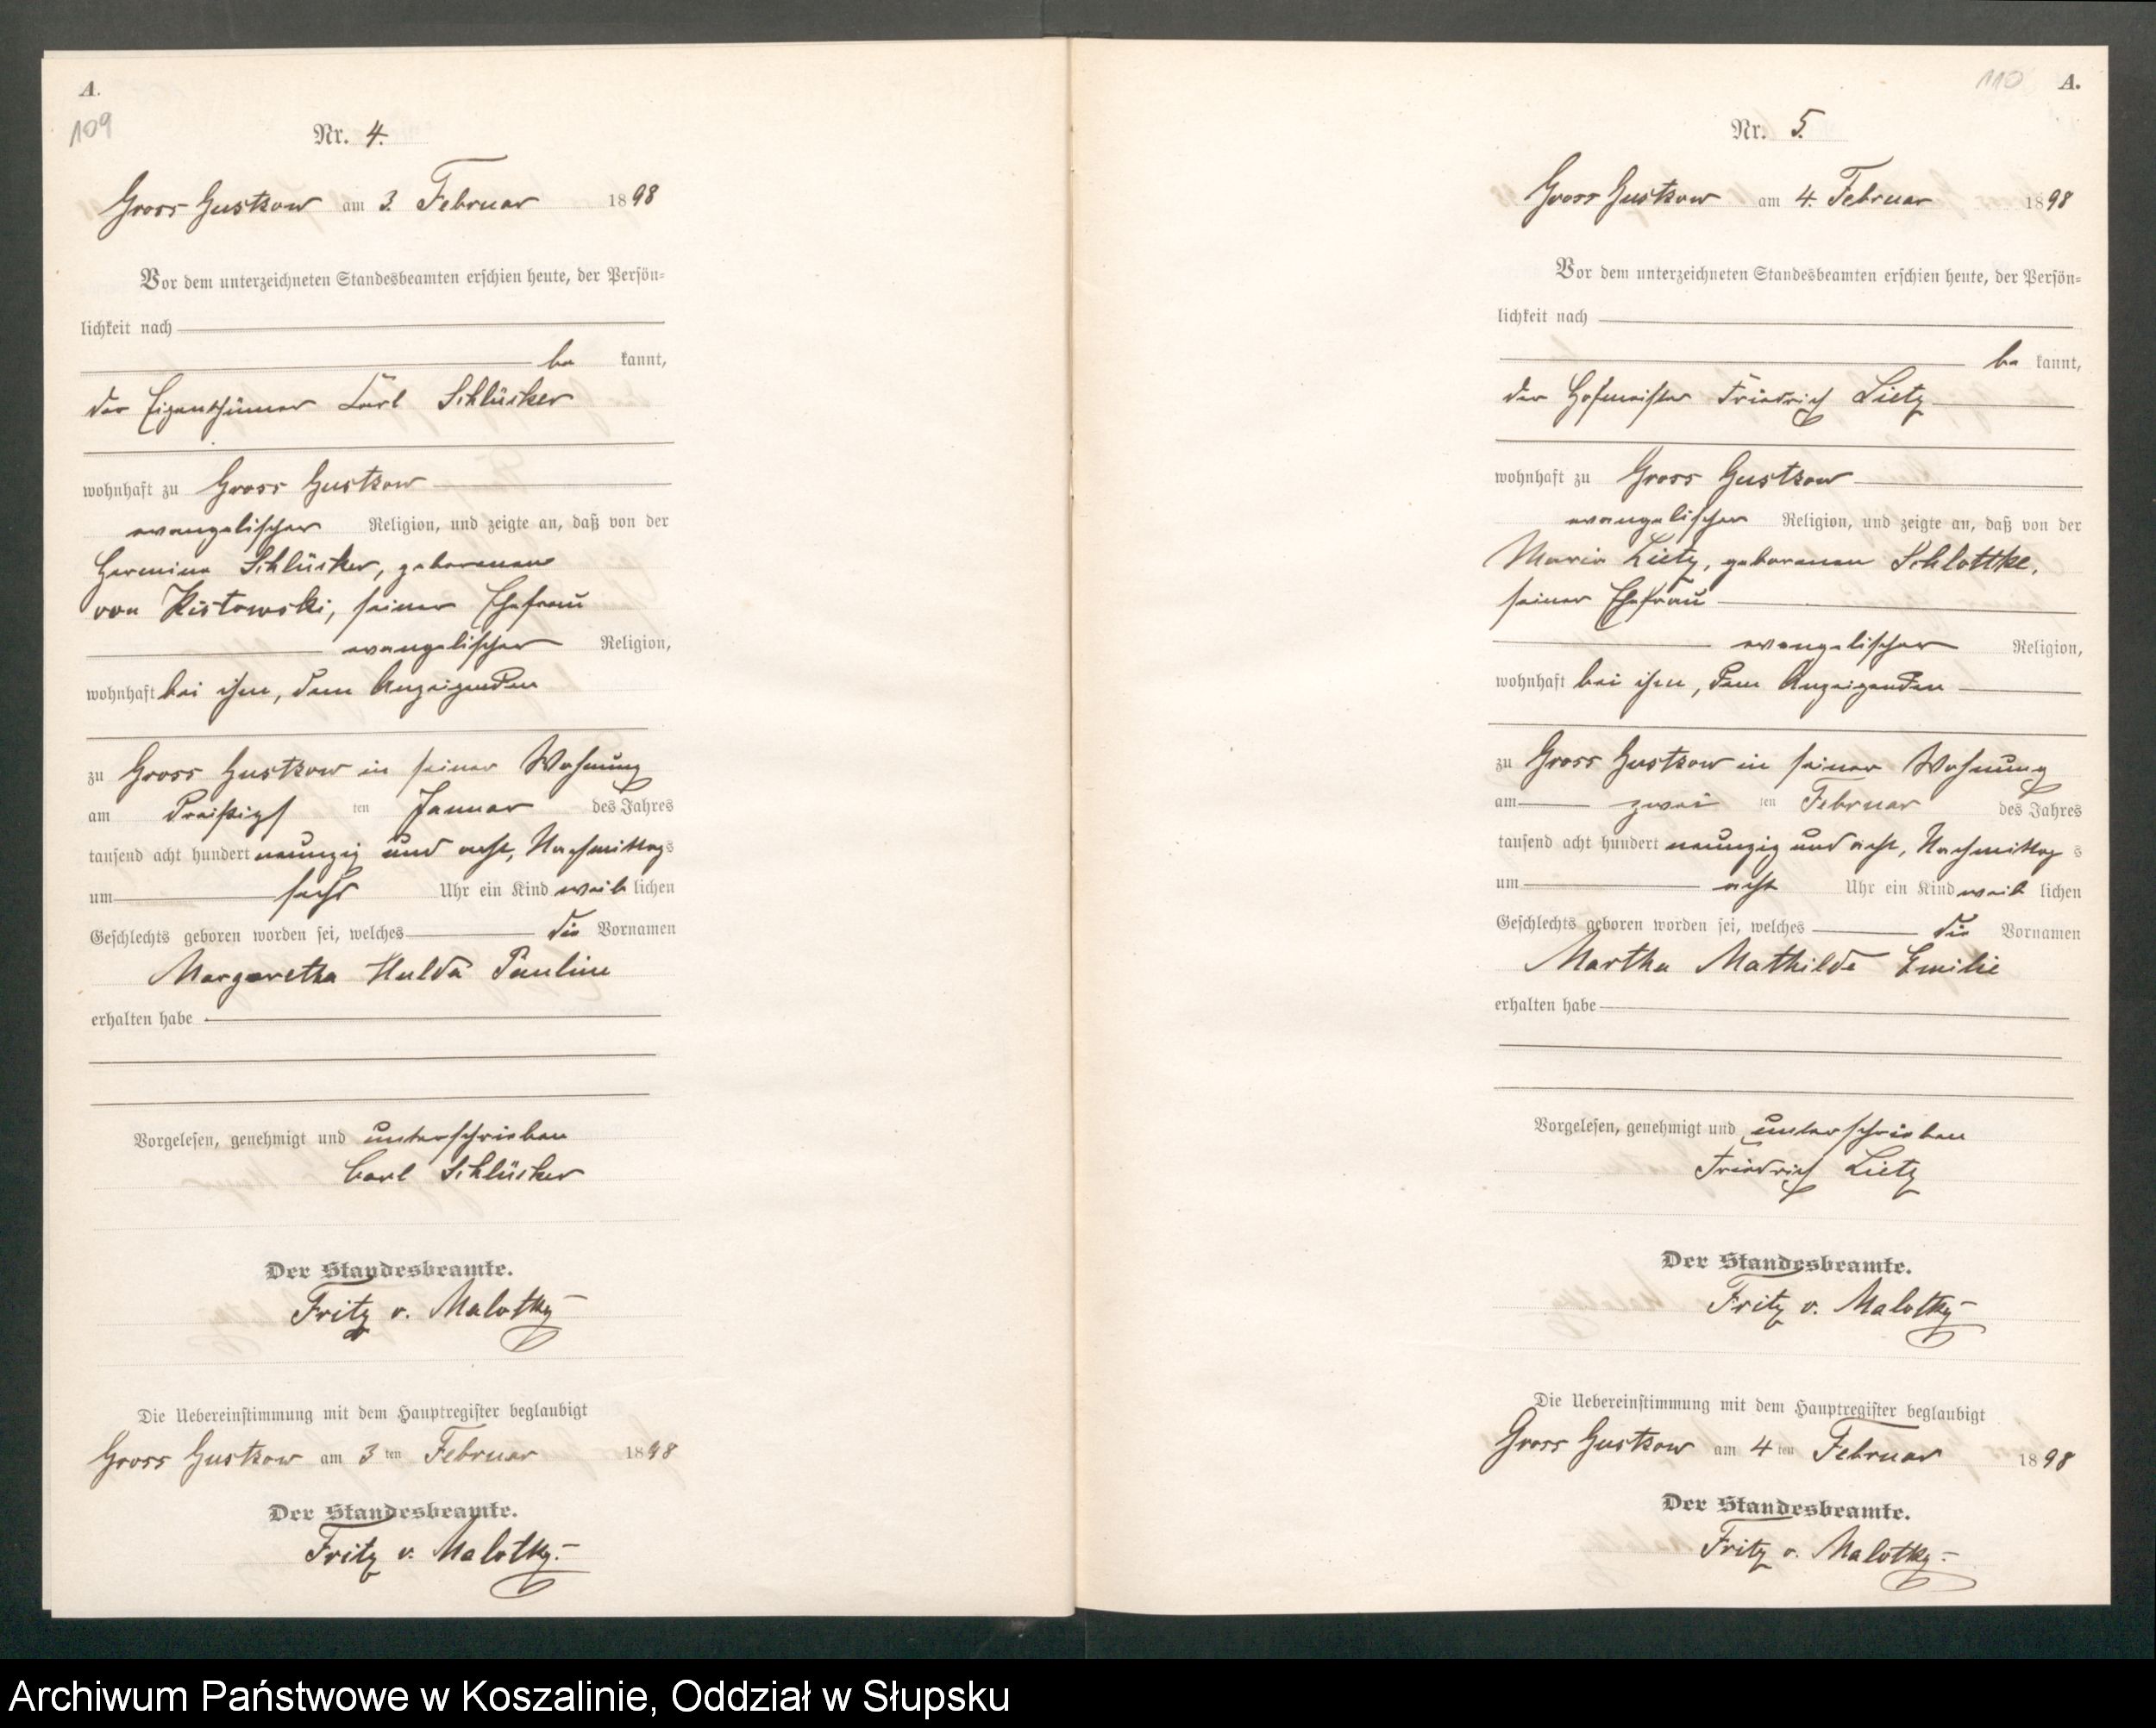 A.
109
Nr. 4.
Gross Gustkow am 3. Februar 1898
Vor dem unterzeichneten Standesbeamten erschien heute, der Persön-
lichkeit nach
be kannt,
der Eigenthümer Carl Schlüsker
wohnhaft zu Gross Gustkow
evangelischer Religion, und zeigte an, daß von der
Hermine Schlüsker, geborenen
von Kistowski, seiner Ehefrau
evangelischer Religion,
wohnhaft bei ihm, dem Anzeigenden
zu Gross Gustkow in seiner Wohnung
am dreißigs ten Januar des Jahres
tausend acht hundert neunzig und acht, Nachmittags
um sechs Uhr ein Kind weib lichen
Geschlechts geboren worden sei, welches die Vornamen
Margaretha Hulda Pauline
erhalten habe
Vorgelesen, genehmigt und unterschrieben
Carl Schlüsker
Der Standesbeamte.
Fritz v. Malotky
Die Uebereinstimmung mit dem Hauptregister beglaubigt
Gross Gustkow am 3 ten Februar 1898
Der Standesbeamte.
Fritz v. Malotky.
110 A.
Nr. 5.
Gross Gustkow am 4. Februar 1898
Vor dem unterzeichneten Standesbeamten erschien heute, der Persön-
lichkeit nach
be kannt,
der Hofmeister Friedrich Lietz
wohnhaft zu Gross Gustkow
evangelischer Religion, und zeigte an, daß von der
Marie Lietz, geborenen Schlottke,
seiner Ehefrau
evangelischer Religion,
wohnhaft bei ihm, dem Anzeigenden
zu Gross Gustkow in seiner Wohnung
am zwei ten Februar des Jahres
tausend acht hundert neunzig und acht, Nachmittag s
um acht Uhr ein Kind weib lichen
Geschlechts geboren worden sei, welches die Vornamen
Martha Mathilde Emilie
erhalten habe
Vorgelesen, genehmigt und unterschrieben
Friedrich Lietz
Der Standesbeamte.
Fritz v. Malotky
Die Uebereinstimmung mit dem Hauptregister beglaubigt
Gross Gustkow am 4 ten Februar 1898
Der Standesbeamte.
Fritz v. Malotky.
Archiwum Państwowe w Koszalinie, Oddział w Słupsku